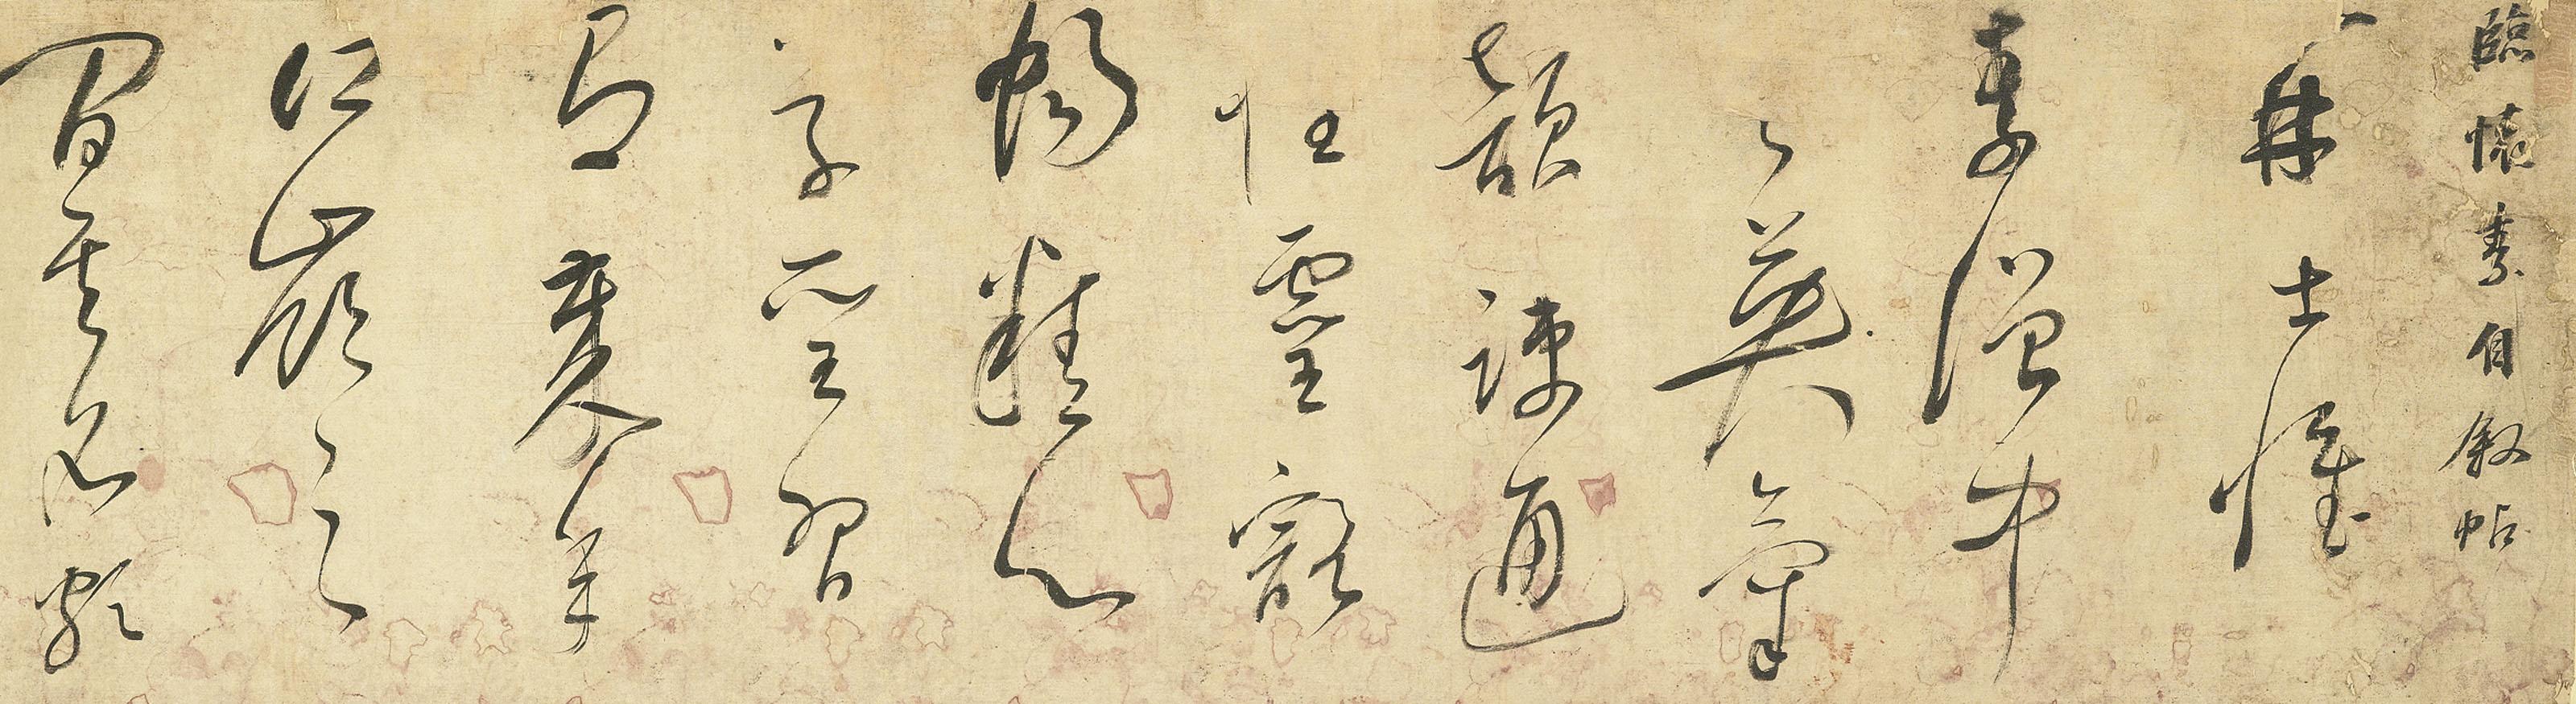 臨懷素自叙帖
開士懷
素僧中
之英氣
疎通
性靈豁
暢精心
草聖習
年
江嶺之
間其名